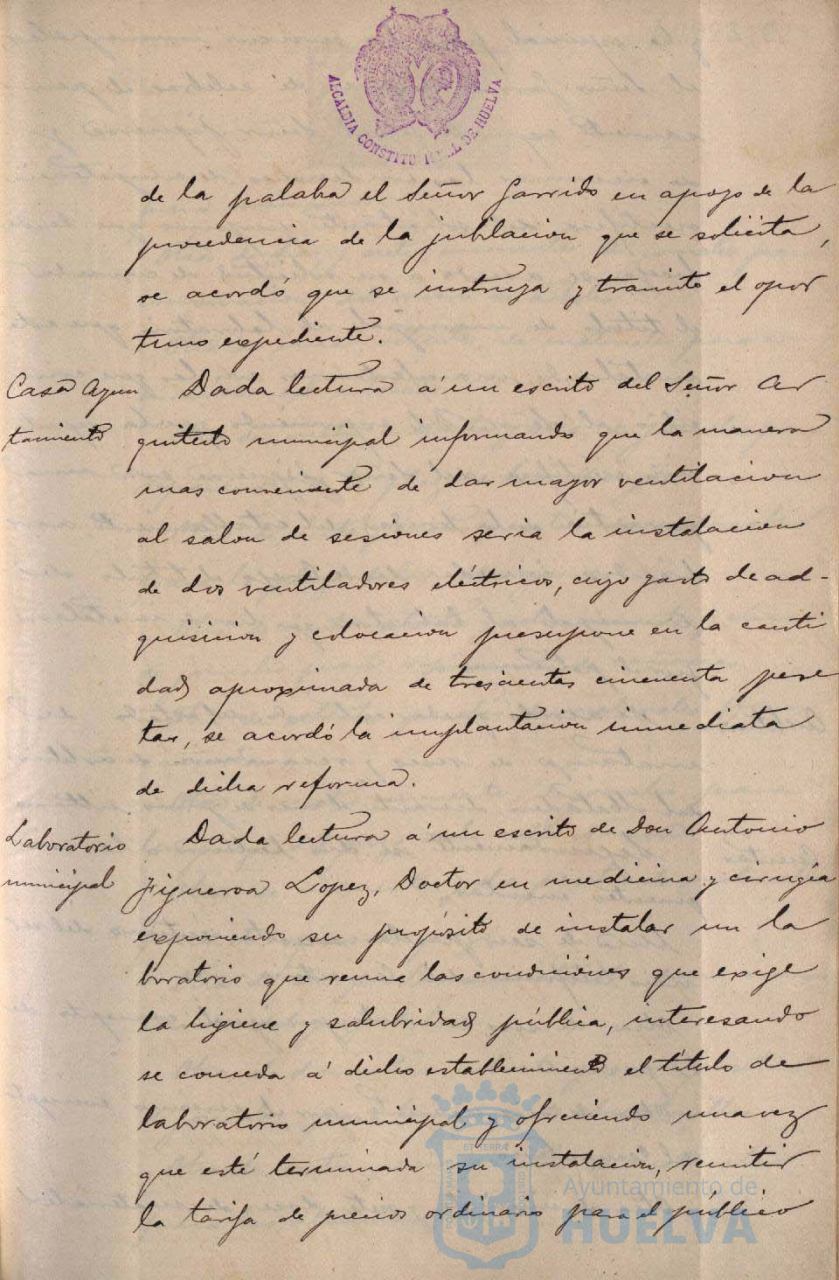 ALCALDIA CONSTITUCIONAL DE HUELVA
de la palabra el Señor Garrido en apoyo de la
procedencia de la jubilacion que se solicita,
se acordó que se instruya y tramite el opor
tuno expediente.
Casa Ayun
tamiento
Dada lectura á un escrito del Señor Ar
quitecto municipal informando que la manera
mas conveniente de dar mayor ventilacion
al salon de sesiones seria la instalacion
de dos ventiladores eléctricos, cuyo gasto de ad-
quisicion y colocacion presupone en la canti
dad aproximada de trescientas cincuenta pese
tas, se acordó la implantacion inmediata
de dicha reforma.
Laboratorio
municipal
Dada lectura á un escrito de Don Antonio
Figueroa Lopez, Doctor en medicina y cirugía
exponiendo su propósito de instalar un la
boratorio que reuna las condiciónes que exige
la higiene y salubridad pública, interesando
se conceda á dicho establecimiento el título de
laboratorio municipal y ofreciendo una vez
que esté terminada su instalacion, remitir
la tarifa de precios ordinario para el público
Ayuntamiento de
HUELVA